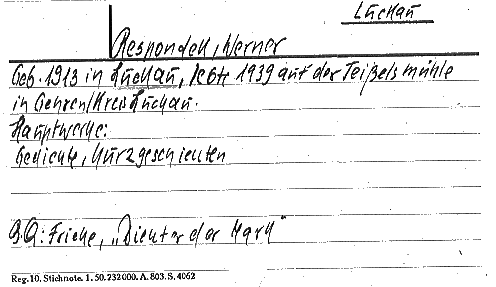 Luckau
Respondek, Werner
Geb. 1913 in Luckau, lebte 1939 auf der Teißelsmühle
in Gehren/Kreis Luckau.
Hauptwerke:
Gedichte, Kurzgeschichten
B.Q.: Fricke, „Dichter der Mark“
Reg.10. Stichnote. 1. 50. 232000. A. 803. S. 4062